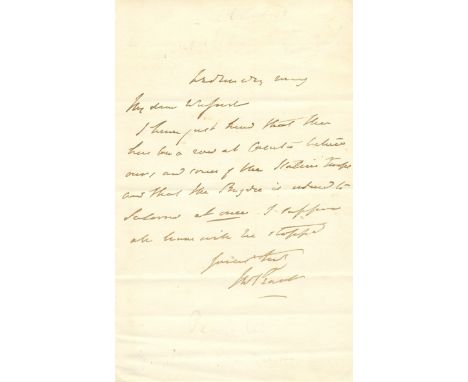 Wednesday mng
My dear
I have just heard that there
has been a row at between
ours and some of the Italian troops
and that the Brigade is ordered to
Salerno at once I suppose
all leave will be stopped
Yours truly